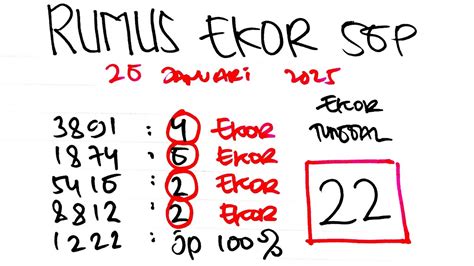 RUMUS EKOR SGP
25 JANUARI 2025
3891 : 4 EKOR
1874 : 5 EKOR
5415 : 2 EKOR
8812 : 2 EKOR
1222 : JP 100%
EKOR
TUNGGAL
22